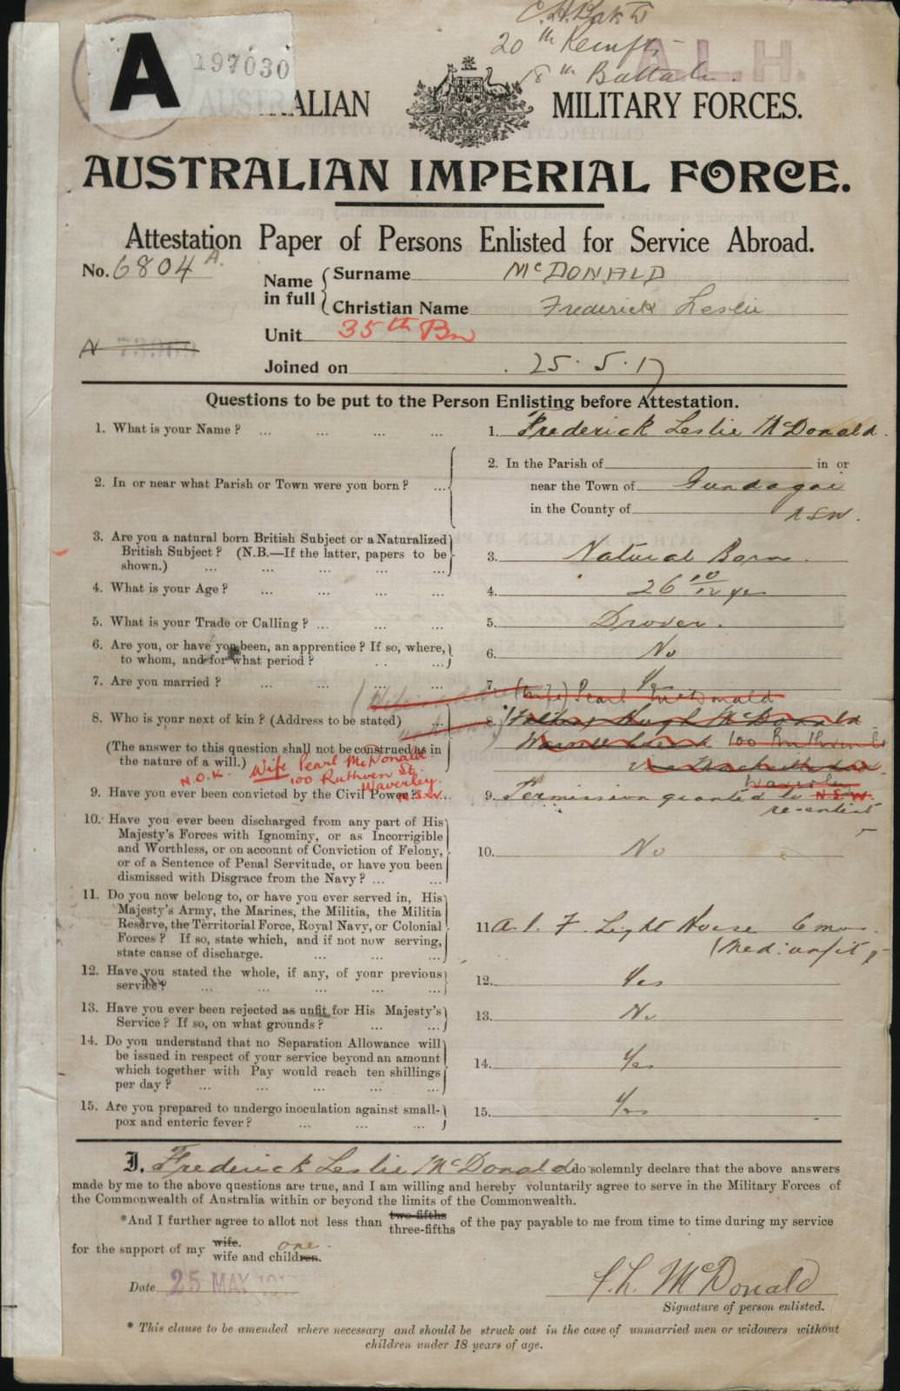 A 197030
20th Reinfts
18th Battn.
A.L.H.
AUSTRALIAN MILITARY FORCES.
AUSTRALIAN IMPERIAL FORCE.
Attestation Paper of Persons Enlisted for Service Abroad.
No. 6804 A.
Name in full { Surname McDONALD
Christian Name Frederick Leslie
Unit 35th Bn
Joined on 25.5.17
Questions to be put to the Person Enlisting before Attestation.
1. What is your Name? ... ... ... ... 1. Frederick Leslie McDonald.
2. In or near what Parish or Town were you born? ... 2. In the Parish of in or
near the Town of Gundagai
in the County of NSW.
3. Are you a natural born British Subject or a Naturalized
British Subject? (N.B.—If the latter, papers to be
shown.) ... ... ... ... 3. Natural Born.
4. What is your Age? ... ... ... ... 4. 26 10/12 yrs
5. What is your Trade or Calling? ... ... ... ... 5. Drover.
6. Are you, or have you been, an apprentice? If so, where,
to whom, and for what period? ... ... 6. No
7. Are you married? ... ... ... ... 7. Yes
(Wife) Pearl McDonald
8. Who is your next of kin? (Address to be stated) 8. (Father) Hugh McDonald
(The answer to this question shall not be construed as in
the nature of a will.)
100 Ruthven St
Waverley
N.S.W.
N.O.K. Wife Pearl McDonald
100 Ruthven St.
Waverley.
N.S.W.
9. Have you ever been convicted by the Civil Power? ... 9. Permission granted to
re-enlist
10. Have you ever been discharged from any part of His
Majesty's Forces with Ignominy, or as Incorrigible
and Worthless, or on account of Conviction of Felony,
or of a Sentence of Penal Servitude, or have you been
dismissed with Disgrace from the Navy? ... ... 10. No
11. Do you now belong to, or have you ever served in, His
Majesty's Army, the Marines, the Militia, the Militia
Reserve, the Territorial Force, Royal Navy, or Colonial
Forces? If so, state which, and if not now serving,
state cause of discharge. ... ... ... 11. A.I.F. Light Horse 6 mos.
(Med: unfit)
12. Have you stated the whole, if any, of your previous
service? ... ... ... ... ... 12. Yes
13. Have you ever been rejected as unfit for His Majesty's
Service? If so, on what grounds? ... ... 13. No
14. Do you understand that no Separation Allowance will
be issued in respect of your service beyond an amount
which together with Pay would reach ten shillings
per day? ... ... ... ... ... 14. Yes
15. Are you prepared to undergo inoculation against small-
pox and enteric fever? ... ... ... 15. Yes
I, Frederick Leslie McDonald do solemnly declare that the above answers
made by me to the above questions are true, and I am willing and hereby voluntarily agree to serve in the Military Forces of
the Commonwealth of Australia within or beyond the limits of the Commonwealth.
*And I further agree to allot not less than two-fifths three-fifths of the pay payable to me from time to time during my service
for the support of my wife. wife and children. one
Date 25 MAY 1917
F. L. McDonald
Signature of person enlisted.
* This clause to be amended where necessary and should be struck out in the case of unmarried men or widowers without
children under 18 years of age.